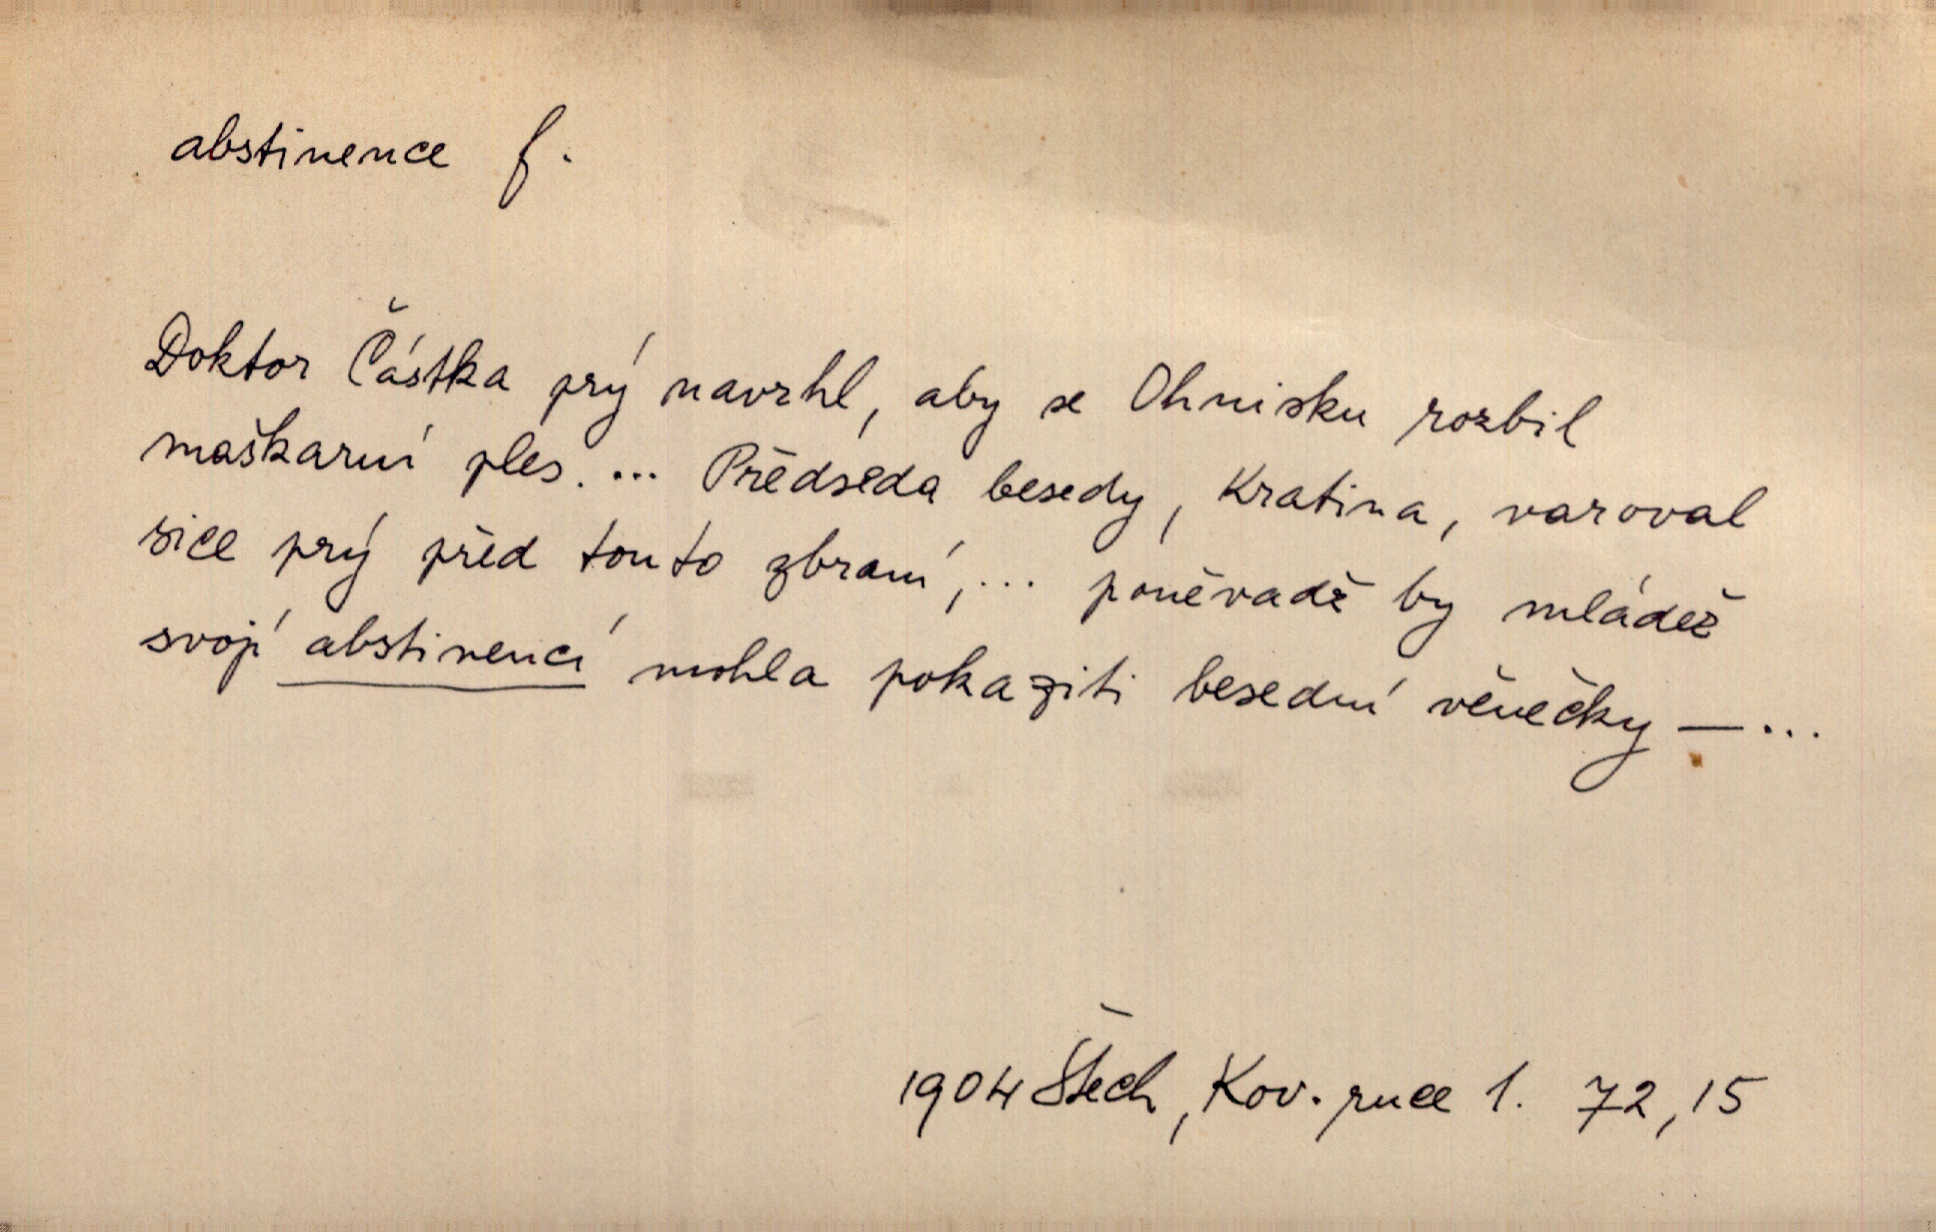 abstinence f.
Doktor Částka prý navrhl, aby se Ohnisku rozbil
maškarní ples. ... Předseda besedy, Kratina, varoval
sice prý před touto zbraní, ... poněvadž by mládež
svojí abstinencí mohla pokaziti besední věnečky — ...
1904 Štech, Kov. ruce 1. 72, 15